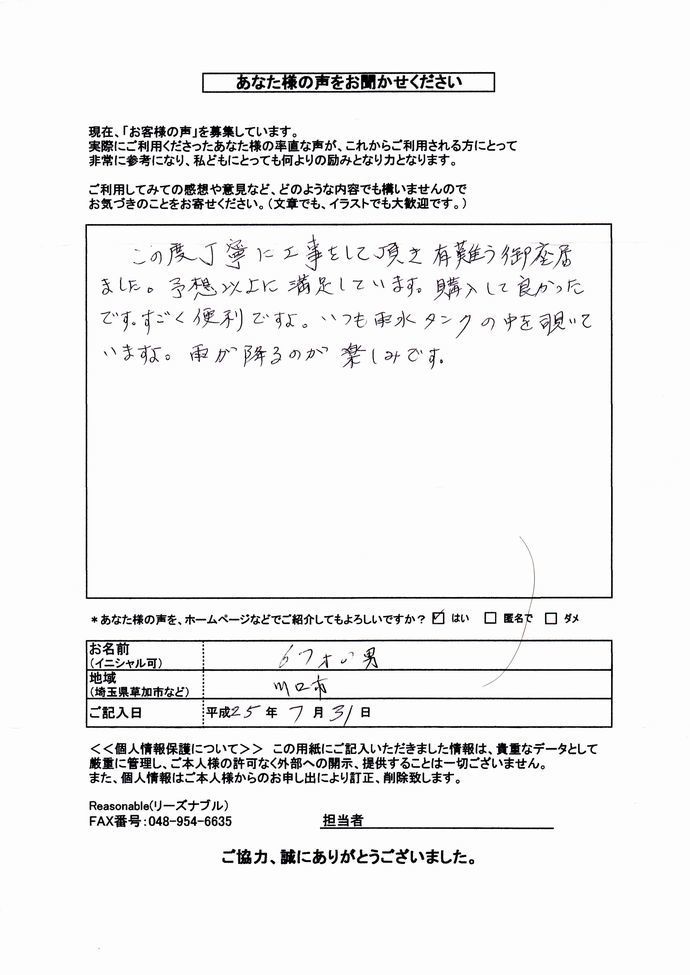 あなた様の声をお聞かせください
現在、「お客様の声」を募集しています。
実際にご利用くださったあなた様の率直な声が、これからご利用される方にとって
非常に参考になり、私どもにとっても何よりの励みとなり力となります。
ご利用してみての感想や意見など、どのような内容でも構いませんので
お気づきのことをお寄せください。（文章でも、イラストでも大歓迎です。）
この度丁寧に工事をして頂き有難う御座居
ました。予想以上に満足しています。購入して良かった
です。すごく便利ですよ。いつも雨水タンクの中を覗いて
いますよ。雨が降るのが楽しみです。
*あなた様の声を、ホームページなどでご紹介してもよろしいですか？ ☑ はい □ 匿名で □ ダメ
お名前
（イニシャル可）
67才い男
地域
（埼玉県草加市など）
川口市
ご記入日 平成25年 7月31日
＜＜個人情報保護について＞＞ この用紙にご記入いただきました情報は、貴重なデータとして
厳重に管理し、ご本人様の許可なく外部への開示、提供することは一切ございません。
また、個人情報はご本人様からのお申し出により訂正、削除致します。
Reasonable(リーズナブル)
FAX番号：048-954-6635 担当者
ご協力、誠にありがとうございました。